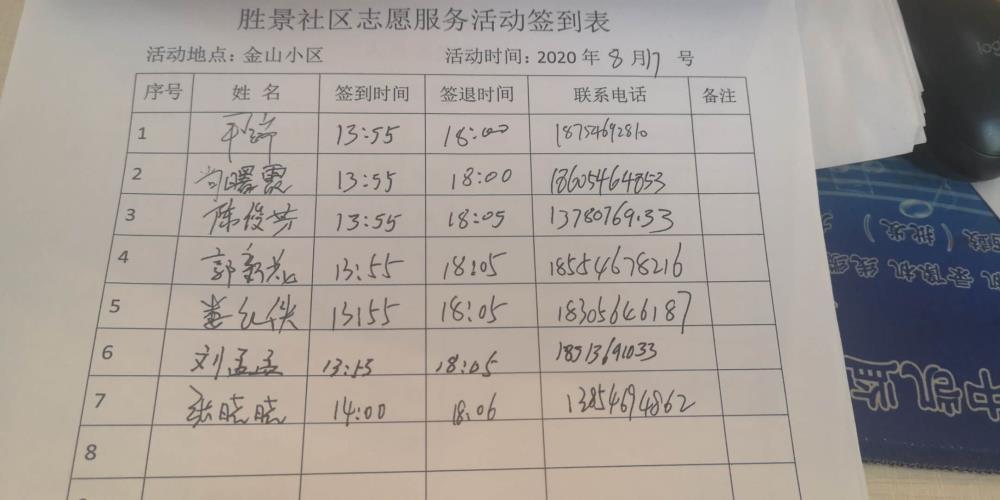 胜景社区志愿服务活动签到表
活动地点：金山小区 活动时间：2020 年 8 月17 号
序号 姓 名 签到时间 签退时间 联系电话 备注
1 13:55 18:00 18754692810
2 曙霞 13:55 18:00 18605464853
3 陈俊芳 13:55 18:05
4 郭新花 13:55 18:05 18554678216
5 娄红侠 13:55 18:05 18305646187
6 刘孟孟 13:53 18:05
7 张晓晓 14:00 18:06 13854694862
8
中凯监
（批发）
机 录像机